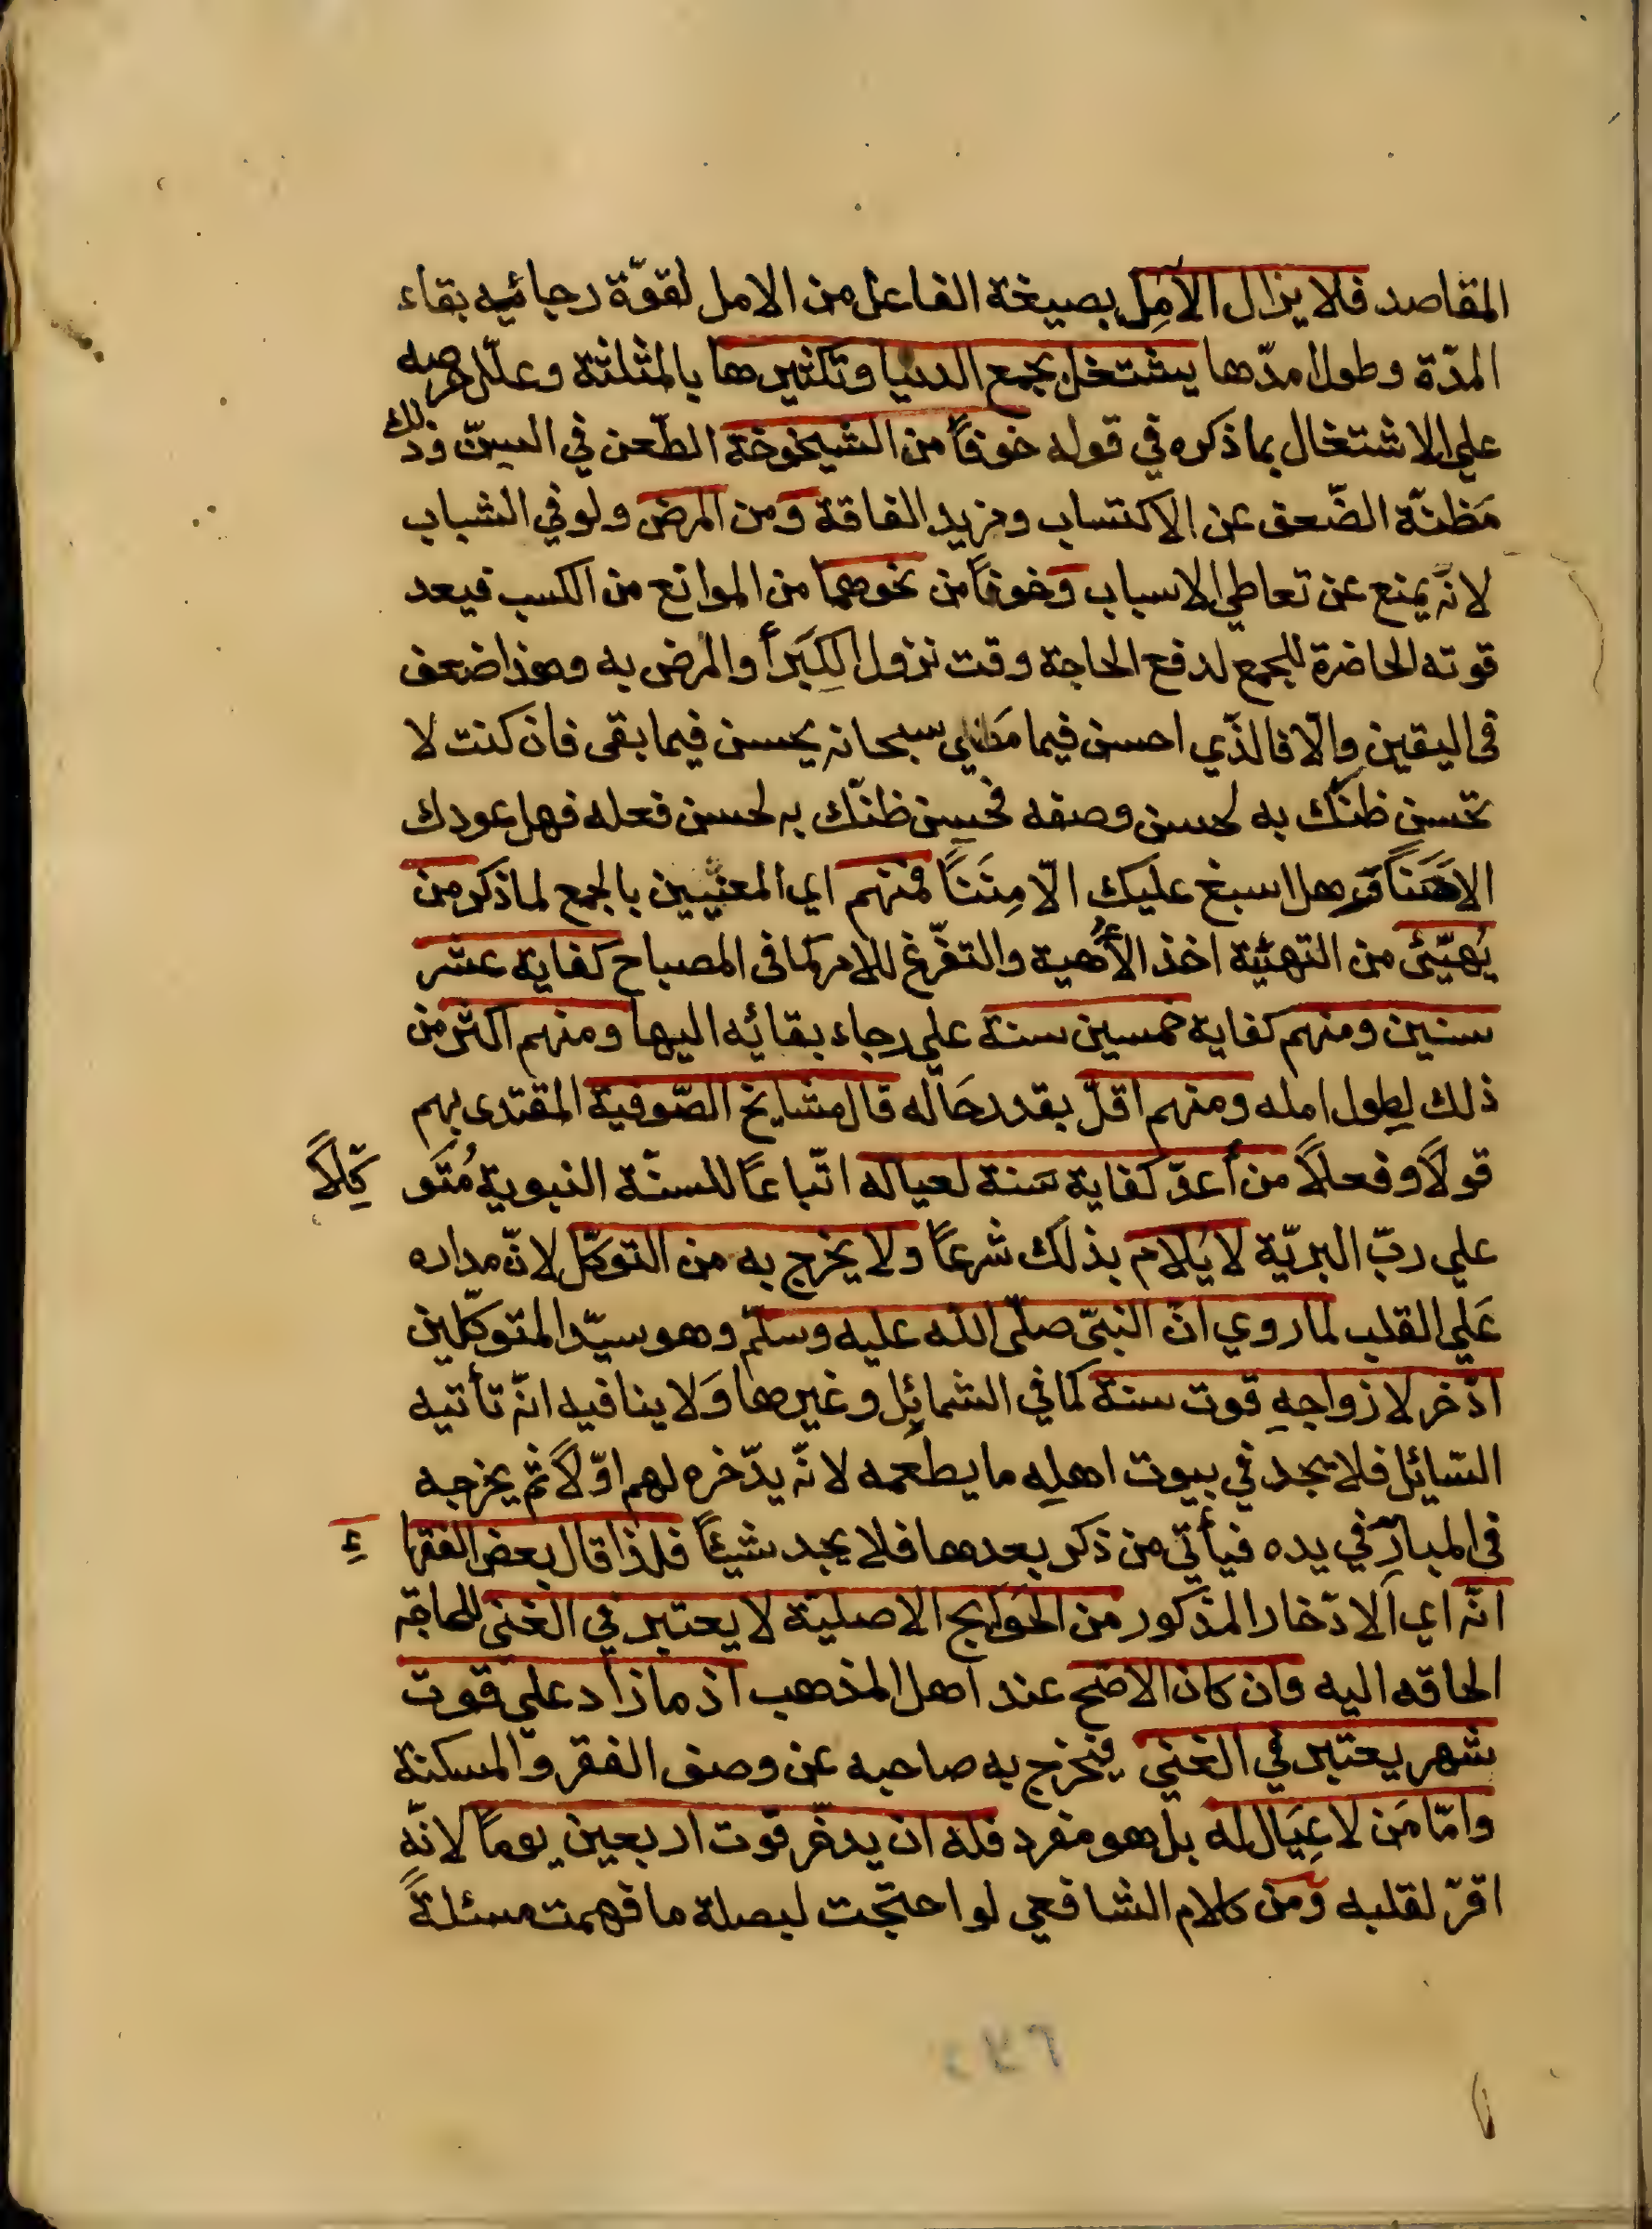 المقاصد فلا يزال الآمِل بصيغة الفاعل من الامل لقوّة رجائيه بقاء
المدّة وطول امدّها يشتغل بجمع الدنيا وتكثيرها بالمثلثة وعلّل حرصه
علي الاشتغال بما ذكره في قوله خوفاً من الشيخوخة الطّعن في السنّ وذلك
مَظنّة الضّعف عن الاكتساب ومزيد الفاقة ومن المرض ولو في الشباب
لانّه يمنع عن تعاطي الاسباب وخوفاً من نحوهما من الموانع من الكسب فيعد
قوته الحاضرة للجمع لدفع الحاجة وقت نزول الكِبَر أو المرض به وهذا ضعف
في اليقين والّا فالذّي احسن فيما مَضَي سبحانه يحسن فيما بقى فان كنت لا
تحسن ظنّك به لحسن وصفه فحسِن ظنّك به لحسن فعله فهل عودك
الا حَسَناً وهل اسبغ عليك الّا مِنَناً فمنهم اي المعنيّين بالجمع لما ذكر من
يُهيّئ من التهيّة اخذ الأُهبة والتفرّغ للامر كما في المصباح كفاية عشر
سنين ومنهم كفاية خمسين سنة علي رجاء بقائه اليها ومنهم اكثر من
ذلك لِطول امله ومنهم اقلّ بقدر حَاله قال مشايخ الصّوفية المقتدى بهم
قولاً وفعلاً من أعدّ كفاية سَنة لعياله اتّباعاً للسنّة النبوية مُتَوكّلِاً
علي ربّ البريّة لا يُلام بذلك شرعاً ولا يخرج به من التوكّل لانّ مداره
عَلي القلب لما روي انّ النبيّ صلّى الله عليه وسلّم وهو سيّد المتوكّلين
ادّخر لازواجهِ قوت سنة كما في الشمائِل وغيرها وَلا ينافيه انّه تأتيه
السّائل فلا يجد في بيوت اهلِه ما يطعمه لانّه يدّخره لهم اوّلاً ثمّ يخرجه
في المبارّ في يده فيأتي من ذكر بعدها فلا يجد شيئاً فلذا قال بعض الفقهاءِ
انّه اي الادّخار المذكور من الحَوَايج الاصليّة لا يعتبر في الغنى للحاجة
الحاقه اليه وان كان الاصّح عند اهل المذهب انّ ما زاد علي قوت
شهر يعتبر في الغني فيخرج به صاحبه عن وصف الفقر والمسكنة
وامّا مَن لا عِيَال له بل هو مفرد فله ان يدخّر قوت اربعين يوماً لانّه
اقرّ لقلبه ومن كلام الشافعي لو احتجت لبصلة ما فهمت مسئلةً